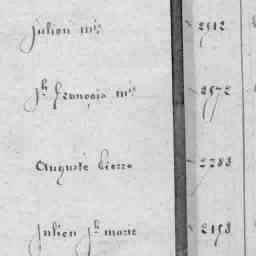 Julien mis 2512
Jh françois mis 2572
Auguste Pierre 2288
Julien Jh marie 2158